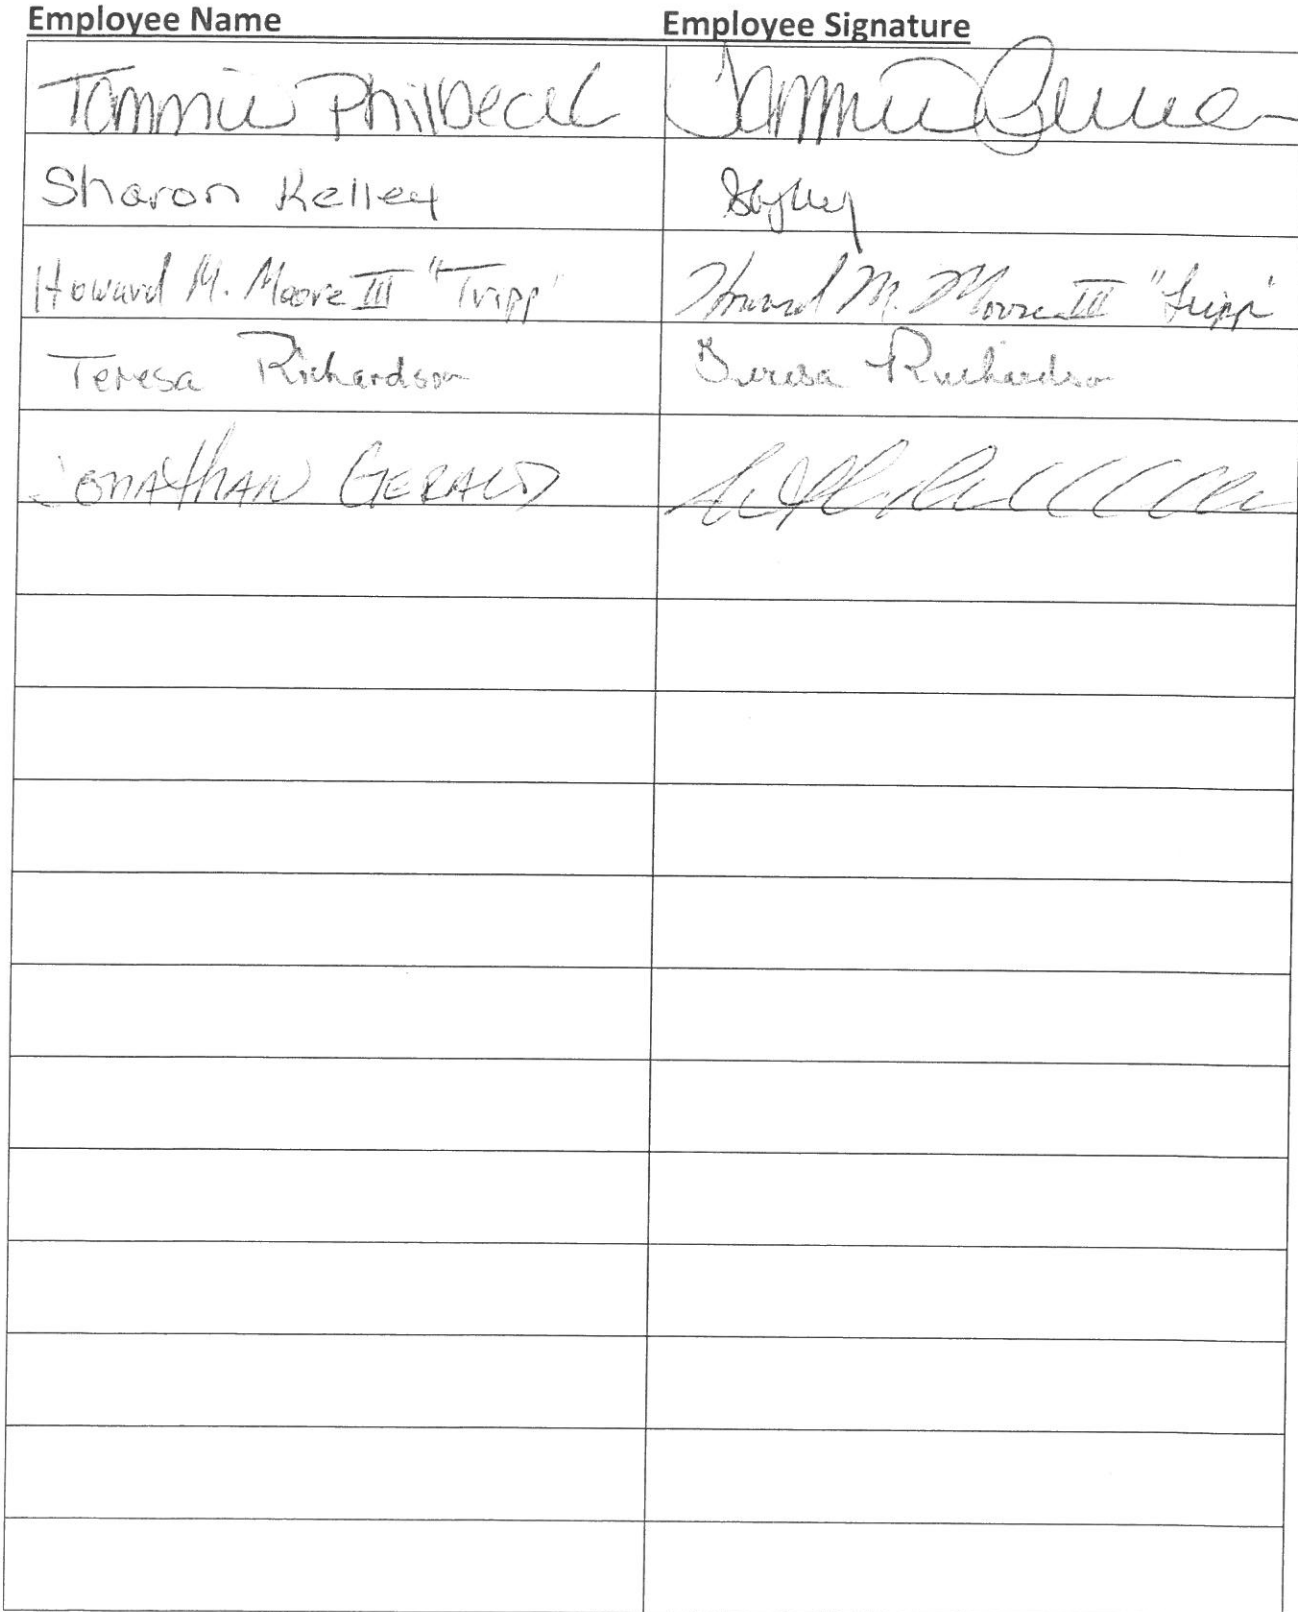 Employee Name Employee Signature
Tammie Philbeck Tammie
Sharon Kelley
Howard M. Moore III "Tripp" Howard M. Moore III "Tripp"
Teresa Richardson Teresa Richardson
Jonathan Gerald